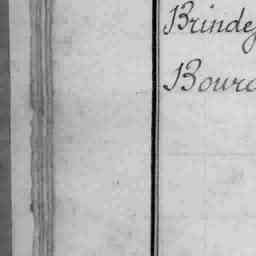 Brinde
Bourd